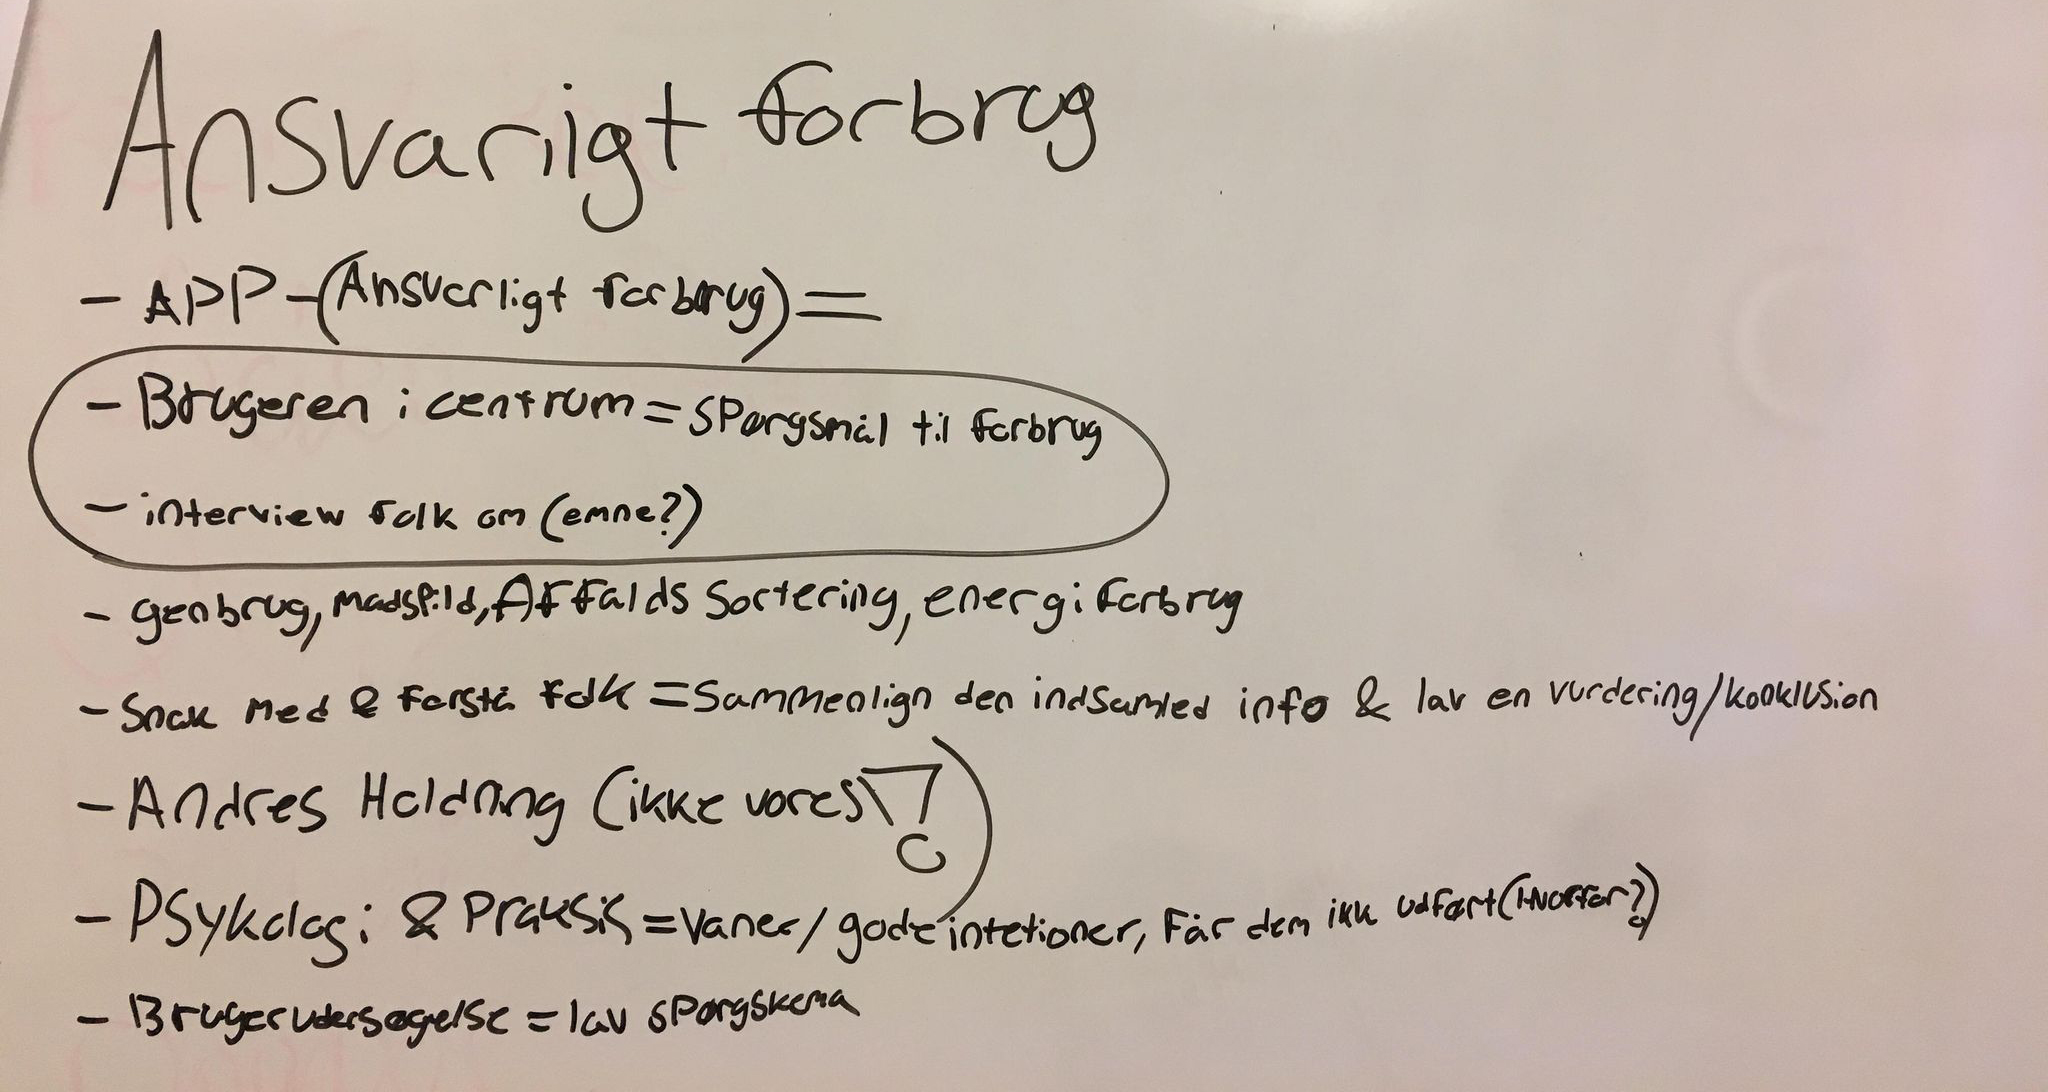 Ansvarligt forbrug
- APP - (Ansvarligt forbrug) =
- Brugeren i centrum = spørgsmål til forbrug
- interview folk om (emne?)
- genbrug, madspild, Affalds Sortering, energiforbrug
- Snak med & forstå folk = Sammenlign den indsamled info & lav en vurdering/konklusion
- Andres Holdning (ikke vores)!
- Psykologi & Praksis = Vaner/gode intetioner, Får dem ikk udført (Hvorfor?)
- Brugerudersøgelse = lav spørgskema